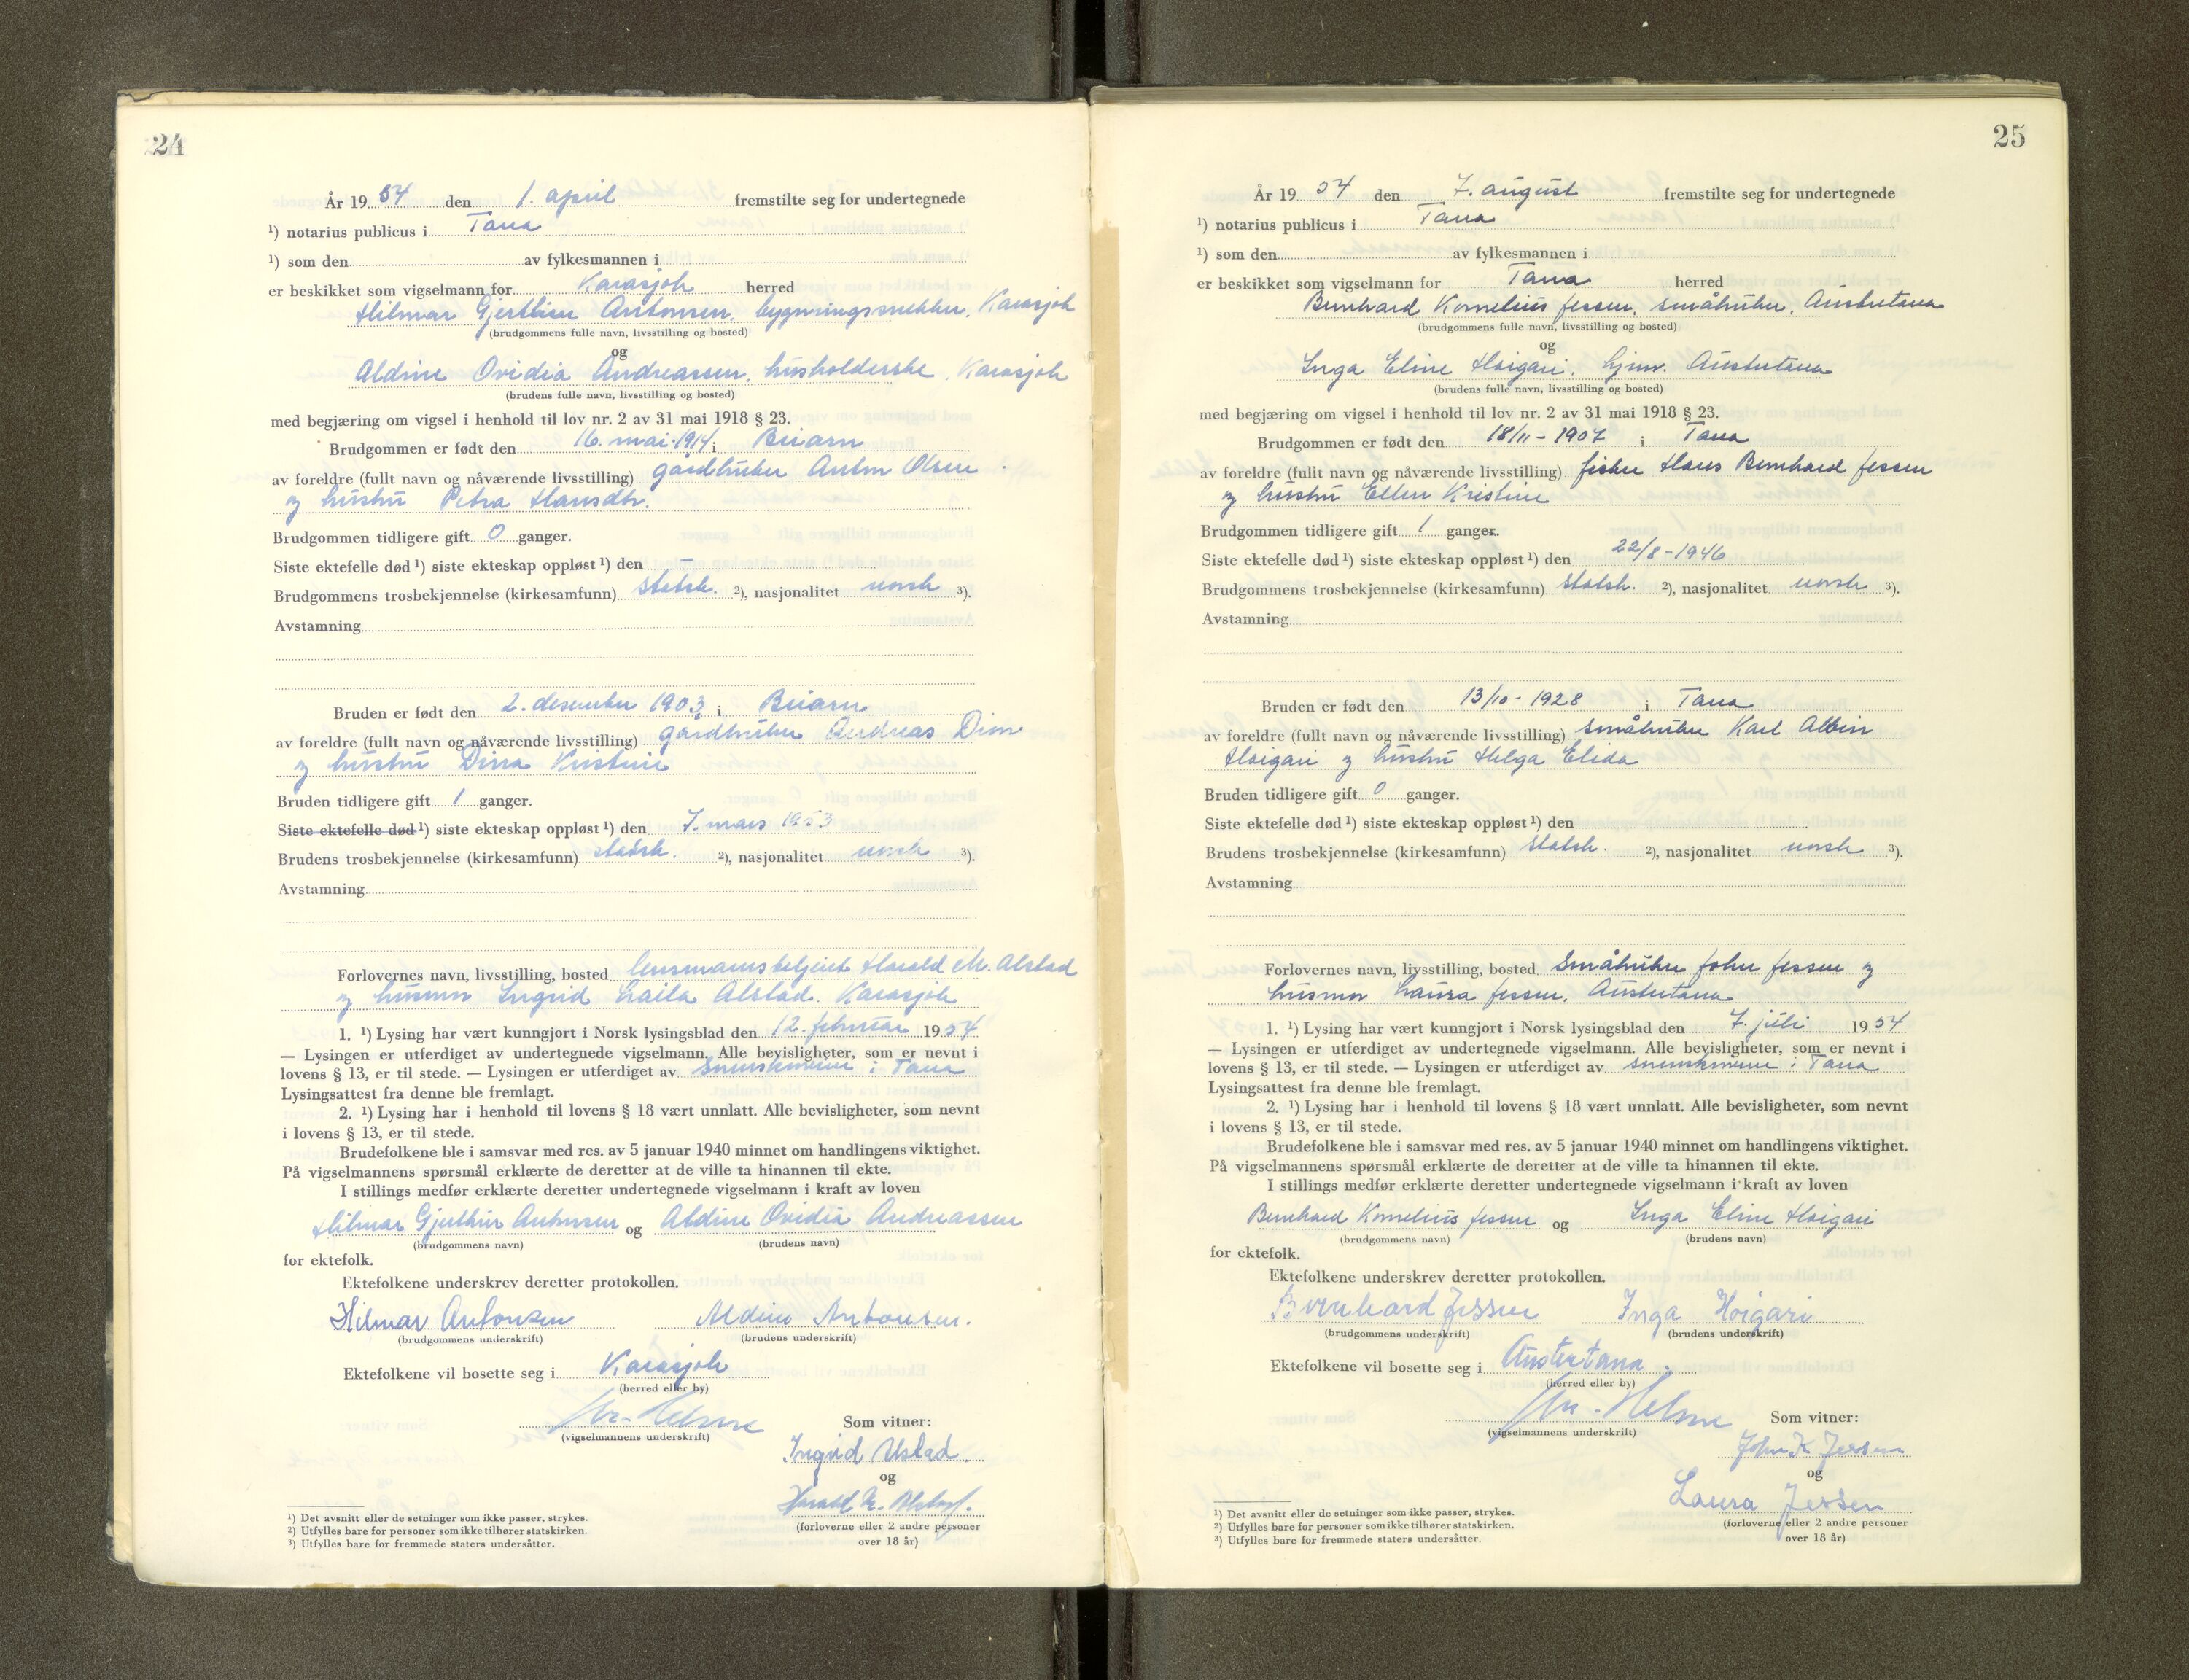 24
År 19 54 den 1. april fremstilte seg for undertegnede
¹) notarius publicus i Tana
¹) som den av fylkesmannen i
er beskikket som vigselmann for Karasjok herred
Hilmar Gjerthin Antonsen, bygningssnekker, Karasjok
(brudgommens fulle navn, livsstilling og bosted)
og
Aldine Ovidia Andreassen, husholderske, Karasjok
(brudens fulle navn, livsstilling og bosted)
med begjæring om vigsel i henhold til lov nr. 2 av 31 mai 1918 § 23.
Brudgommen er født den 16. mai 1914 i Beiarn
av foreldre (fullt navn og nåværende livsstilling) gårdbruker Anton Olsen
og hustru Petra Hansdtr.
Brudgommen tidligere gift 0 ganger.
Siste ektefelle død ¹) siste ekteskap oppløst ¹) den —
Brudgommens trosbekjennelse (kirkesamfunn) statsk. ²), nasjonalitet norsk ³).
Avstamning
Bruden er født den 2. desember 1903 i Beiarn
av foreldre (fullt navn og nåværende livsstilling) gårdbruker Andreas Dim
og hustru Dina Kristine
Bruden tidligere gift 1 ganger.
Siste ektefelle død ¹) siste ekteskap oppløst ¹) den 7. mars 1953
Brudens trosbekjennelse (kirkesamfunn) statsk. ²), nasjonalitet norsk ³).
Avstamning
Forlovernes navn, livsstilling, bosted lensmannsbetjent Harald M. Alstad
og husmor Ingrid Laila Alstad, Karasjok
1. ¹) Lysing har vært kunngjort i Norsk lysingsblad den 12. februar 1954
— Lysingen er utferdiget av undertegnede vigselmann. Alle bevisligheter, som er nevnt i
lovens § 13, er til stede. — Lysingen er utferdiget av sorenskriveren i Tana
Lysingsattest fra denne ble fremlagt.
2. ¹) Lysing har i henhold til lovens § 18 vært unnlatt. Alle bevisligheter, som nevnt
i lovens § 13, er til stede.
Brudefolkene ble i samsvar med res. av 5 januar 1940 minnet om handlingens viktighet.
På vigselmannens spørsmål erklærte de deretter at de ville ta hinannen til ekte.
I stillings medfør erklærte deretter undertegnede vigselmann i kraft av loven
Hilmar Gjerthin Antonsen og Aldine Ovidia Andreassen
(brudgommens navn) (brudens navn)
for ektefolk.
Ektefolkene underskrev deretter protokollen.
Hilmar Antonsen Aldine Antonsen.
(brudgommens underskrift) (brudens underskrift)
Ektefolkene vil bosette seg i Karasjok
(herred eller by)
(vigselmannens underskrift)
Som vitner:
Ingrid Alstad
og
Harald M. Alstad.
(forloverne eller 2 andre personer
over 18 år)
¹) Det avsnitt eller de setninger som ikke passer, strykes.
²) Utfylles bare for personer som ikke tilhører statskirken.
³) Utfylles bare for fremmede staters undersåtter.
25
År 19 54 den 7. august fremstilte seg for undertegnede
¹) notarius publicus i Tana
¹) som den av fylkesmannen i
er beskikket som vigselmann for Tana herred
Bernhard Kornelius Jessen, småbruker, Austertana
(brudgommens fulle navn, livsstilling og bosted)
og
Inga Eline Hoigari, hjemv. Austertana
(brudens fulle navn, livsstilling og bosted)
med begjæring om vigsel i henhold til lov nr. 2 av 31 mai 1918 § 23.
Brudgommen er født den 18/11 - 1907 i Tana
av foreldre (fullt navn og nåværende livsstilling) fisker Hans Bernhard Jessen
og hustru Ellen Kristine
Brudgommen tidligere gift 1 ganger.
Siste ektefelle død ¹) siste ekteskap oppløst ¹) den 22/8 - 1946
Brudgommens trosbekjennelse (kirkesamfunn) statsk. ²), nasjonalitet norsk ³).
Avstamning
Bruden er født den 13/10 - 1928 i Tana
av foreldre (fullt navn og nåværende livsstilling) småbruker Karl Albin
Hoigari og hustru Helga Elida
Bruden tidligere gift 0 ganger.
Siste ektefelle død ¹) siste ekteskap oppløst ¹) den
Brudens trosbekjennelse (kirkesamfunn) statsk. ²), nasjonalitet norsk ³).
Avstamning
Forlovernes navn, livsstilling, bosted Småbruker John Jessen og
husmor Laura Jessen, Austertana
1. ¹) Lysing har vært kunngjort i Norsk lysingsblad den 7. juli 1954
— Lysingen er utferdiget av undertegnede vigselmann. Alle bevisligheter, som er nevnt i
lovens § 13, er til stede. — Lysingen er utferdiget av sorenskriveren i Tana
Lysingsattest fra denne ble fremlagt.
2. ¹) Lysing har i henhold til lovens § 18 vært unnlatt. Alle bevisligheter, som nevnt
i lovens § 13, er til stede.
Brudefolkene ble i samsvar med res. av 5 januar 1940 minnet om handlingens viktighet.
På vigselmannens spørsmål erklærte de deretter at de ville ta hinannen til ekte.
I stillings medfør erklærte deretter undertegnede vigselmann i kraft av loven
Bernhard Kornelius Jessen og Inga Eline Hoigari
(brudgommens navn) (brudens navn)
for ektefolk.
Ektefolkene underskrev deretter protokollen.
Bernhard Jessen Inga Hoigari
(brudgommens underskrift) (brudens underskrift)
Ektefolkene vil bosette seg i Austertana.
(herred eller by)
(vigselmannens underskrift)
Som vitner:
John K Jessen
og
Laura Jessen
(forloverne eller 2 andre personer
over 18 år)
¹) Det avsnitt eller de setninger som ikke passer, strykes.
²) Utfylles bare for personer som ikke tilhører statskirken.
³) Utfylles bare for fremmede staters undersåtter.